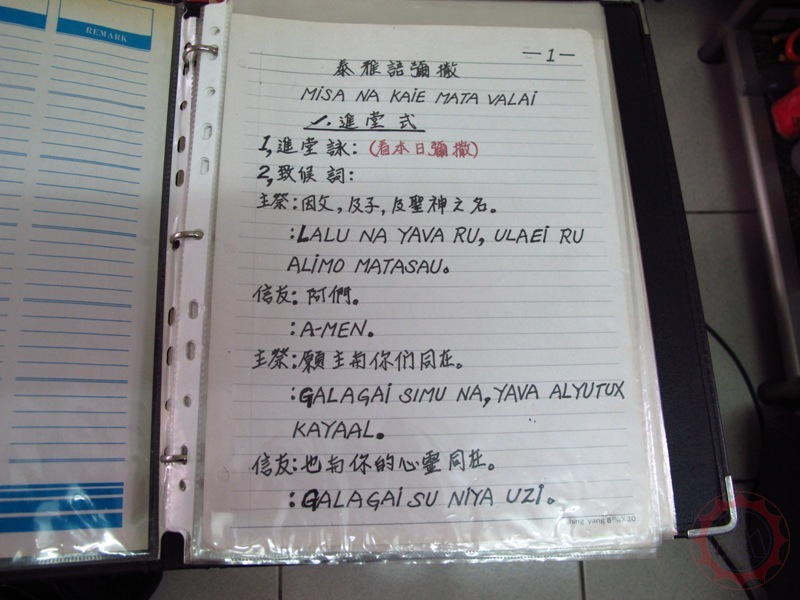 REMARK
—1—
泰雅語彌撒
MISA NA KAIE MATA VALAI
一.進堂式
1,進堂詠:(看本日彌撒)
2,致候詞:
主祭:因父,及子,及聖神之名。
:LALU NA YAVA RU, ULAEI RU
ALIMO MATASAU。
信友:阿們。
:A-MEN。
主祭:願主與你们同在。
:GALAGAI SIMU NA, YAVA ALYUTUX
KAYAAL。
信友:也与你的心靈同在。
:GALAGAI SU NIYA UZI。